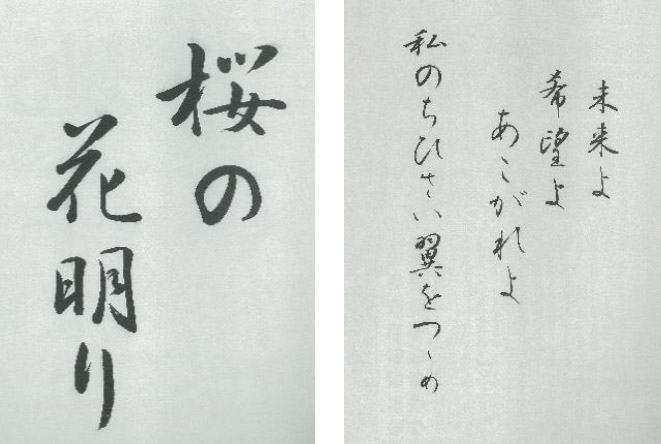 桜の
花明り
未来よ
希望よ
あこがれよ
私のちひさい翼をつゝめ